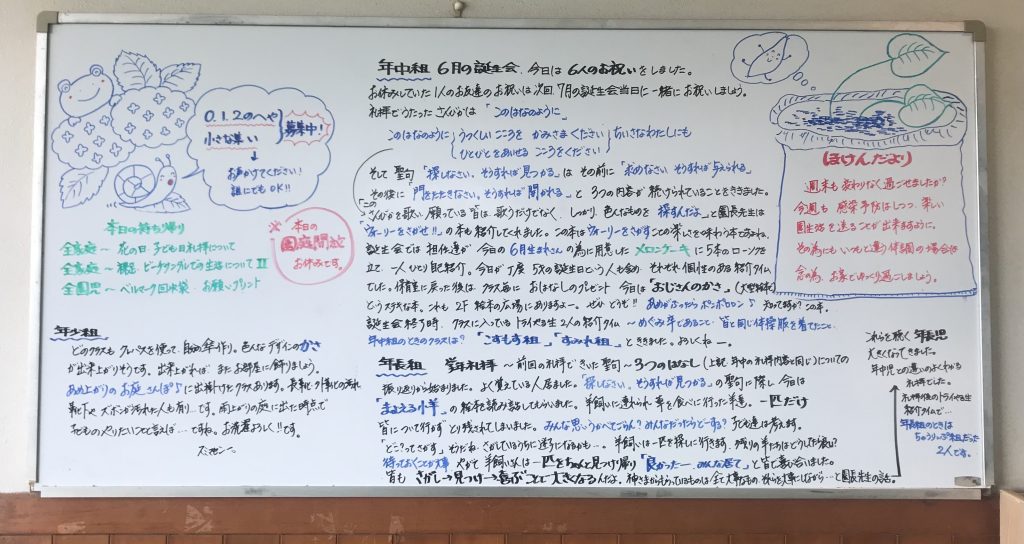 0.1.2のへや
小さな集い
募集中!
↓
お声かけてください!
誰にでもOK!!
本日の持ち帰り
全家庭〜 花の日 子ども日礼拝について
全家庭〜 裸足・ビーチサンダルでの生活について II
全園児〜 ベルマーク回収袋・お願いプリント
※ 本日の
園庭開放
お休みです。
年少組
どのクラスも クレパスを使って、自由画 傘作り。色んなデザインのかさ
が出来上がりそうです。出来上がれば またお部屋に飾りましょう。
あめ上がりのお庭さんぽ♪に出掛けたクラスあります。
靴下や ズボンが汚れた人も有り…です。雨上がりの庭に出た時点で
子どものやりたいことと言えば…ですね。お洗濯よろしく!!です。
スミマセン〜。
年中組 6月の誕生会、今日は 6人のお祝いをしました。
お休みしていた 1人のお友達のお祝いは次回、7月の誕生会当日に一緒にお祝いしましょう。
礼拝でうたった さんびかは 「このはなのように」
このはなのように うつくしい こころを かみさまください ちいさなわたしにも
ひとびとをあいせる こころをください
そして 聖句 「探しなさい、そうすれば見つかる」は その前に 「求めなさい、そうすれば与えられる」
その後に 「門をたたきなさい、そうすれば開かれる」と 3つの内容が 続けられていることをききました。
この さんびかを歌い、願っている皆は、歌うだけでなく、しっかり、色んなものを 探すんだよ」と園長先生は
「ウォーリーをさがせ!!」の本も紹介してくれました。この本はウォーリーをさがすことの楽しさを味わう本ですよね。
誕生会では 担任達が 今日の 6月生まれさんの為に用意した メロンケーキに 5本のローソクを
立て、一人ひとり自己紹介。今日が丁度 5才の誕生日という人も含め、それぞれ個性のある紹介タイム
でした。保育室に戻った後は クラス毎に おはなしのプレゼント 今日は「おじさんのかさ」(大型絵本)
というステキな本。これも 2F 絵本の広場にありますよー。ぜひどうぞ!! あめがふったら ポンポロロン♪ 知ってますか?この本。
誕生会終了時、クラスに入っている トライやる生 2人の紹介タイム 〜めぐみ卒であること、皆と同じ体操服を着てたこと、
年中組のときのクラスは?「こすもす組」「すみれ組」とききました。よろしくねー。
年長組 学年礼拝 〜前回の礼拝できいた聖句〜 3つのはなし (上記 年中の礼拝内容と同じ)についての
振り返りから始まりました。よく覚えている人居ました。「探しなさい、そうすれば見つかる」の聖句に際し 今日は
「まよえる小羊」の絵本を読み語ってもらいました。羊飼いに連れられ 草を食べに行った羊達。一匹だけ
皆について行けず とり残されてしまいました。みんな思いうかべてごらん?みんなだったらどーする?子ども達は考えます。
「どこ?ってさがす」 そうだね、さがしているうちに迷子になるかも…。羊飼いは一匹を探しに行きます。残りの羊たちはどうしてたらいい?
待っておくことが大事 やがて 羊飼いは 一匹をちゃんと見つけ帰り「良かったー、みんな居て」と皆で喜び合いました。
皆も さがし→見つけ→喜ぶことで大きくなるんだよ。神さまからもらっているものは全て大事なもの、それらを大事にしながら…と園長先生の話。
ほけんだより
週末も変わりなく過ごせましたか?
今週も 感染予防はしつつ、楽しい
園生活を送ることが出来ますように。
その為にも いつもと違う体調の場合は
念の為、お家でゆっくり過ごしましょう。
これらを聴く年長児
大きくなってきました。
年中児との違いのよくわかる
礼拝でした。
礼拝後のトライやる生
紹介タイムで…
年長組のときは
ちゅうりっぷ組だった
2人です。